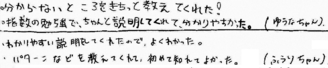 分からないところをきちっと教えてくれた!
・指数の勉強で、ちゃんと説明してくれて、分かりやすかった。(ゆうなちゃん)
・わかりやすい説明をしてくれたので、よくわかった。
・パターンなどを教えてくれて、初めて知れてよかった。(ふうりちゃん)